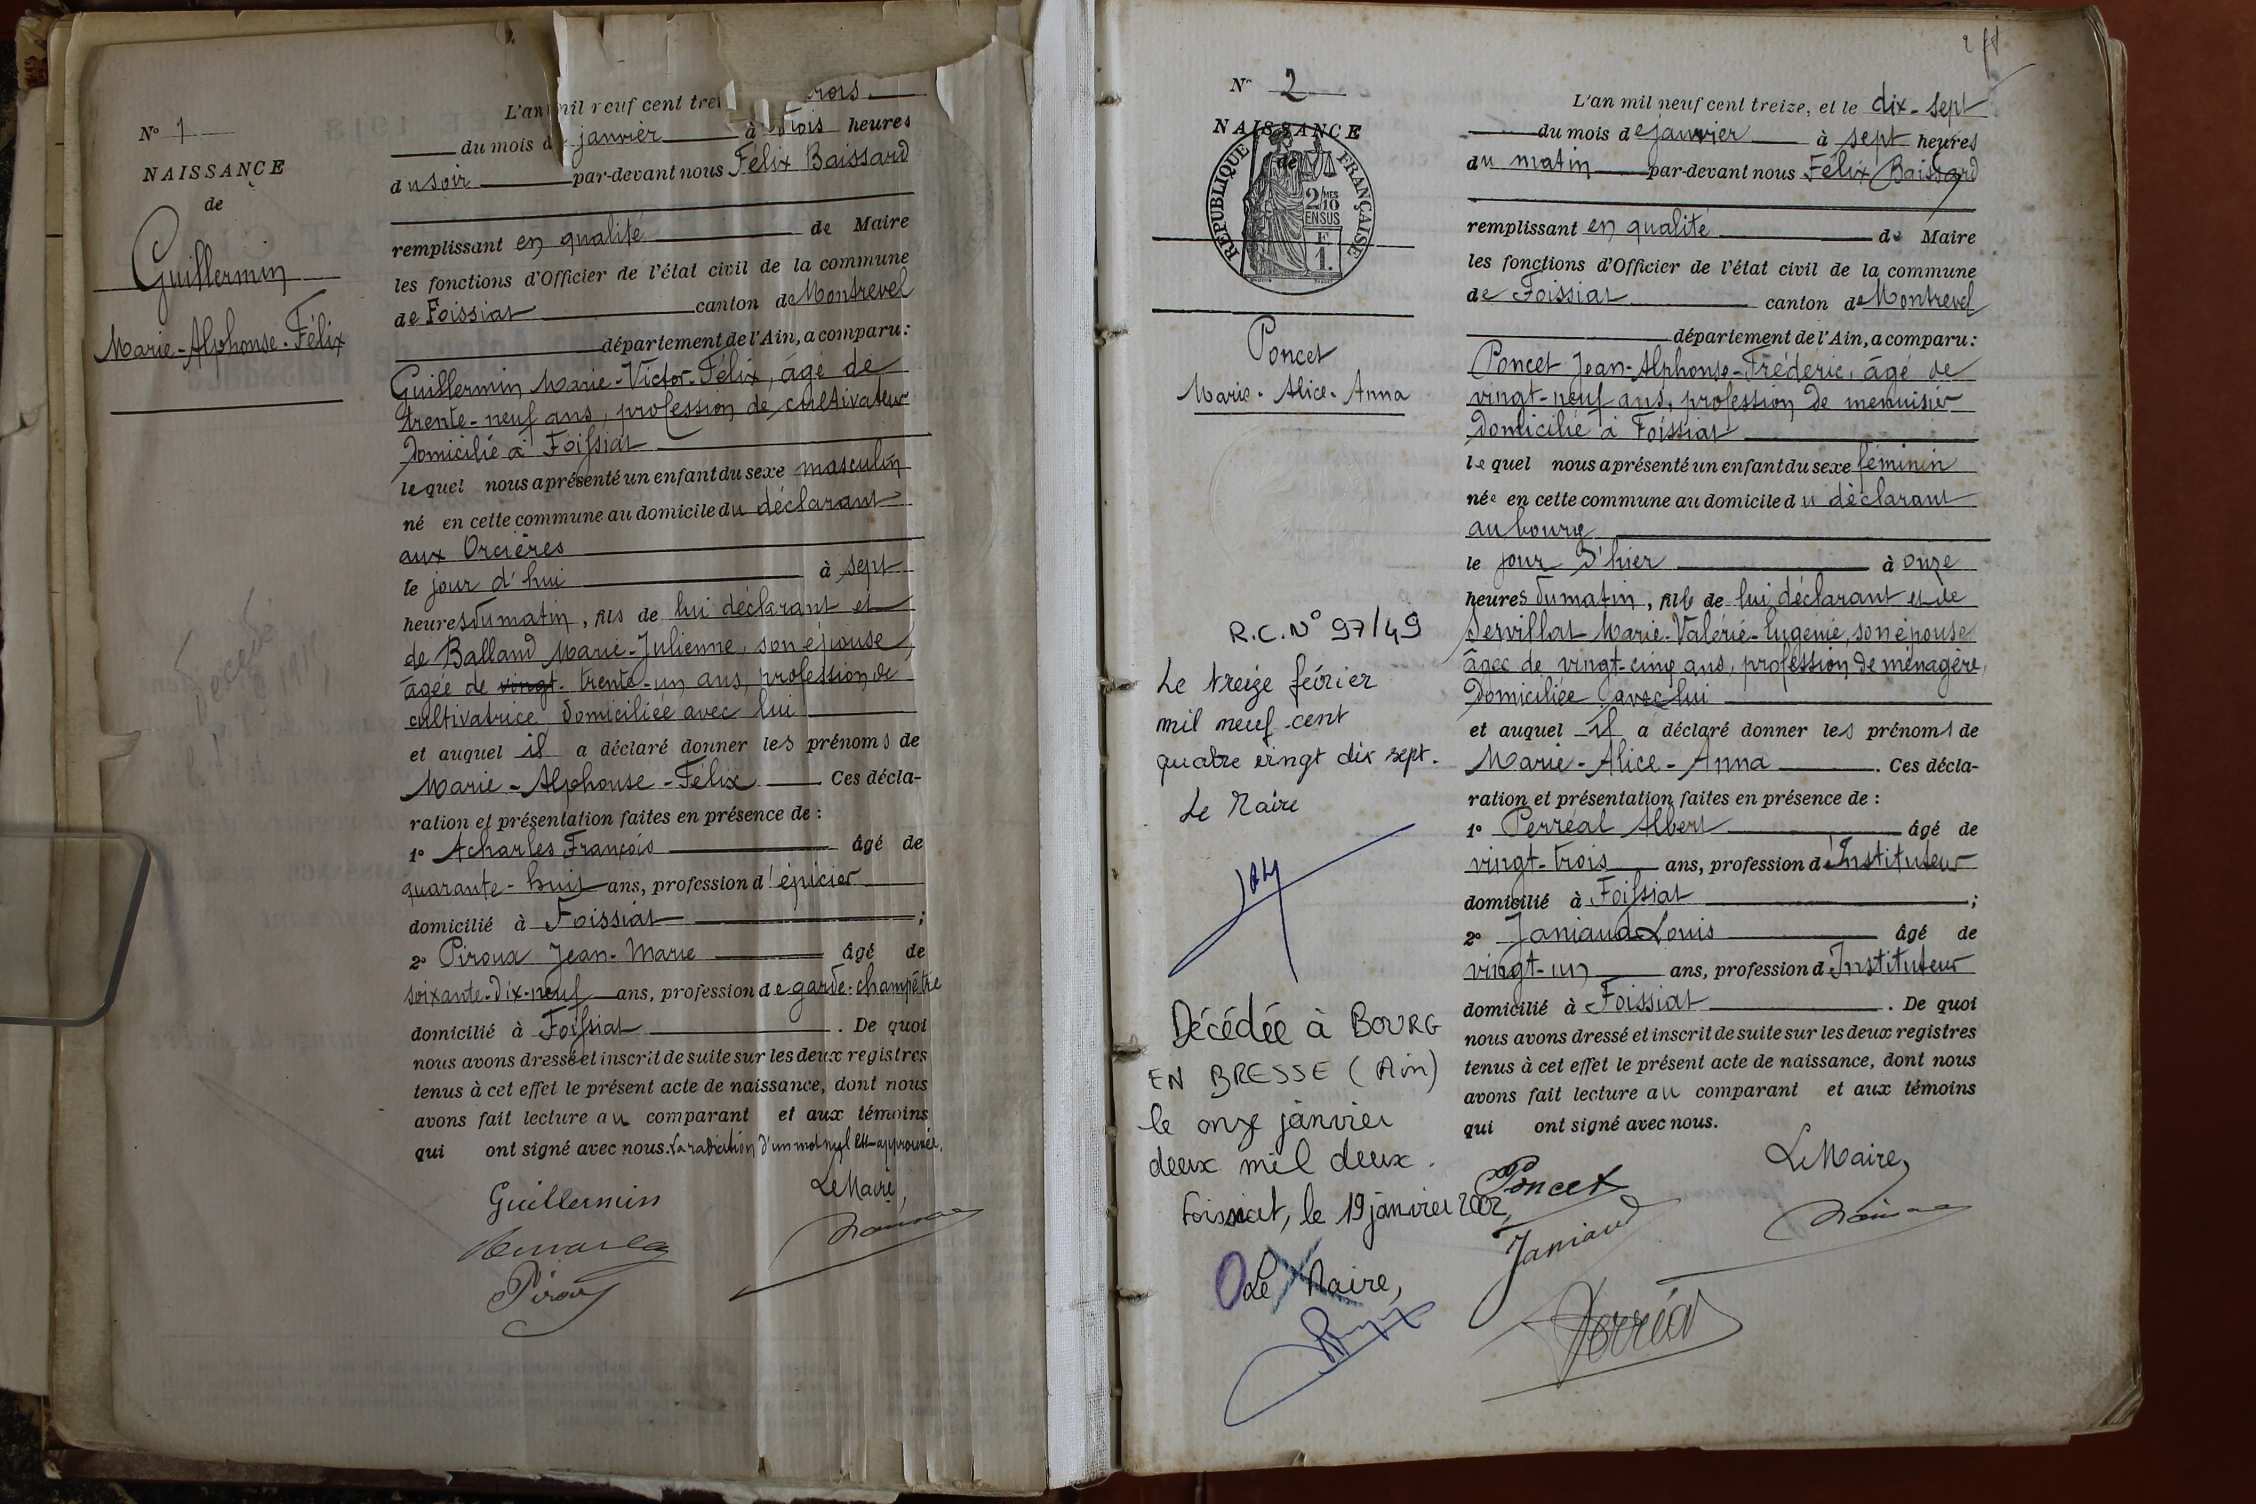 N° 1
NAISSANCE
de
Guillermin
Marie-Alphonse-Félix
L'an mil neuf cent trei rois
du mois de janvier à trois heures
du soir par-devant nous Félix Baissard
remplissant en qualité de Maire
les fonctions d'Officier de l'état civil de la commune
de Foissiat canton de Montrevel
département de l'Ain, a comparu:
Guillermin Marie-Victor-Félix, âgé de
trente-neuf ans, profession de cultivateur
domicilié à Foissiat
lequel nous a présenté un enfant du sexe masculin
né en cette commune au domicile du déclarant
aux Orcières
le jour d'hui à sept
heures du matin, fils de lui déclarant et
de Balland Marie-Julienne, son épouse,
âgée de vingt- trente-un ans, profession de
cultivatrice domiciliée avec lui
et auquel il a déclaré donner les prénoms de
Marie-Alphonse-Félix Ces décla-
ration et présentation faites en présence de :
1° Acharles François âgé de
quarante-huit ans, profession d'épicier
domicilié à Foissiat ;
2° Piroux Jean-Marie âgé de
soixante-dix-neuf ans, profession de garde-champêtre
domicilié à Foissiat . De quoi
nous avons dressé et inscrit de suite sur les deux registres
tenus à cet effet le présent acte de naissance, dont nous
avons fait lecture au comparant et aux témoins
qui ont signé avec nous. La radiation d'un mot nul est approuvée.
Guillermin
Le Maire,
Piroux
N° 2
NAISSANCE
de
RÉPUBLIQUE FRANÇAISE
2/10 MES
EN SUS
F
1.
Poncet
Marie-Alice-Anna
R.C. N° 97/49
Le treize février
mil neuf cent
quatre vingt dix sept.
Le Maire
Décédée à BOURG
EN BRESSE (Ain)
le onze janvier
deux mil deux.
Foissiat, le 19 janvier 2002,
Le Maire,
L'an mil neuf cent treize, et le dix-sept
du mois de janvier à sept heures
du matin par-devant nous Félix Baissard
remplissant en qualité de Maire
les fonctions d'Officier de l'état civil de la commune
de Foissiat canton de Montrevel
département de l'Ain, a comparu:
Poncet Jean-Alphonse-Frédéric, âgé de
vingt-neuf ans, profession de menuisier
domicilié à Foissiat
lequel nous a présenté un enfant du sexe féminin
née en cette commune au domicile du déclarant
au bourg
le jour d'hier à onze
heures du matin, fille de lui déclarant et de
Servillat Marie-Valérie-Eugénie, son épouse
âgée de vingt-cinq ans, profession de ménagère,
domiciliée avec lui
et auquel il a déclaré donner les prénoms de
Marie-Alice-Anna . Ces décla-
ration et présentation faites en présence de :
1° Perréal Albert âgé de
vingt-trois ans, profession d'Instituteur
domicilié à Foissiat ;
2° Janiaud Louis âgé de
vingt-un ans, profession d'Instituteur
domicilié à Foissiat . De quoi
nous avons dressé et inscrit de suite sur les deux registres
tenus à cet effet le présent acte de naissance, dont nous
avons fait lecture au comparant et aux témoins
qui ont signé avec nous.
Le Maire,
Poncet
Janiaud
Perréal